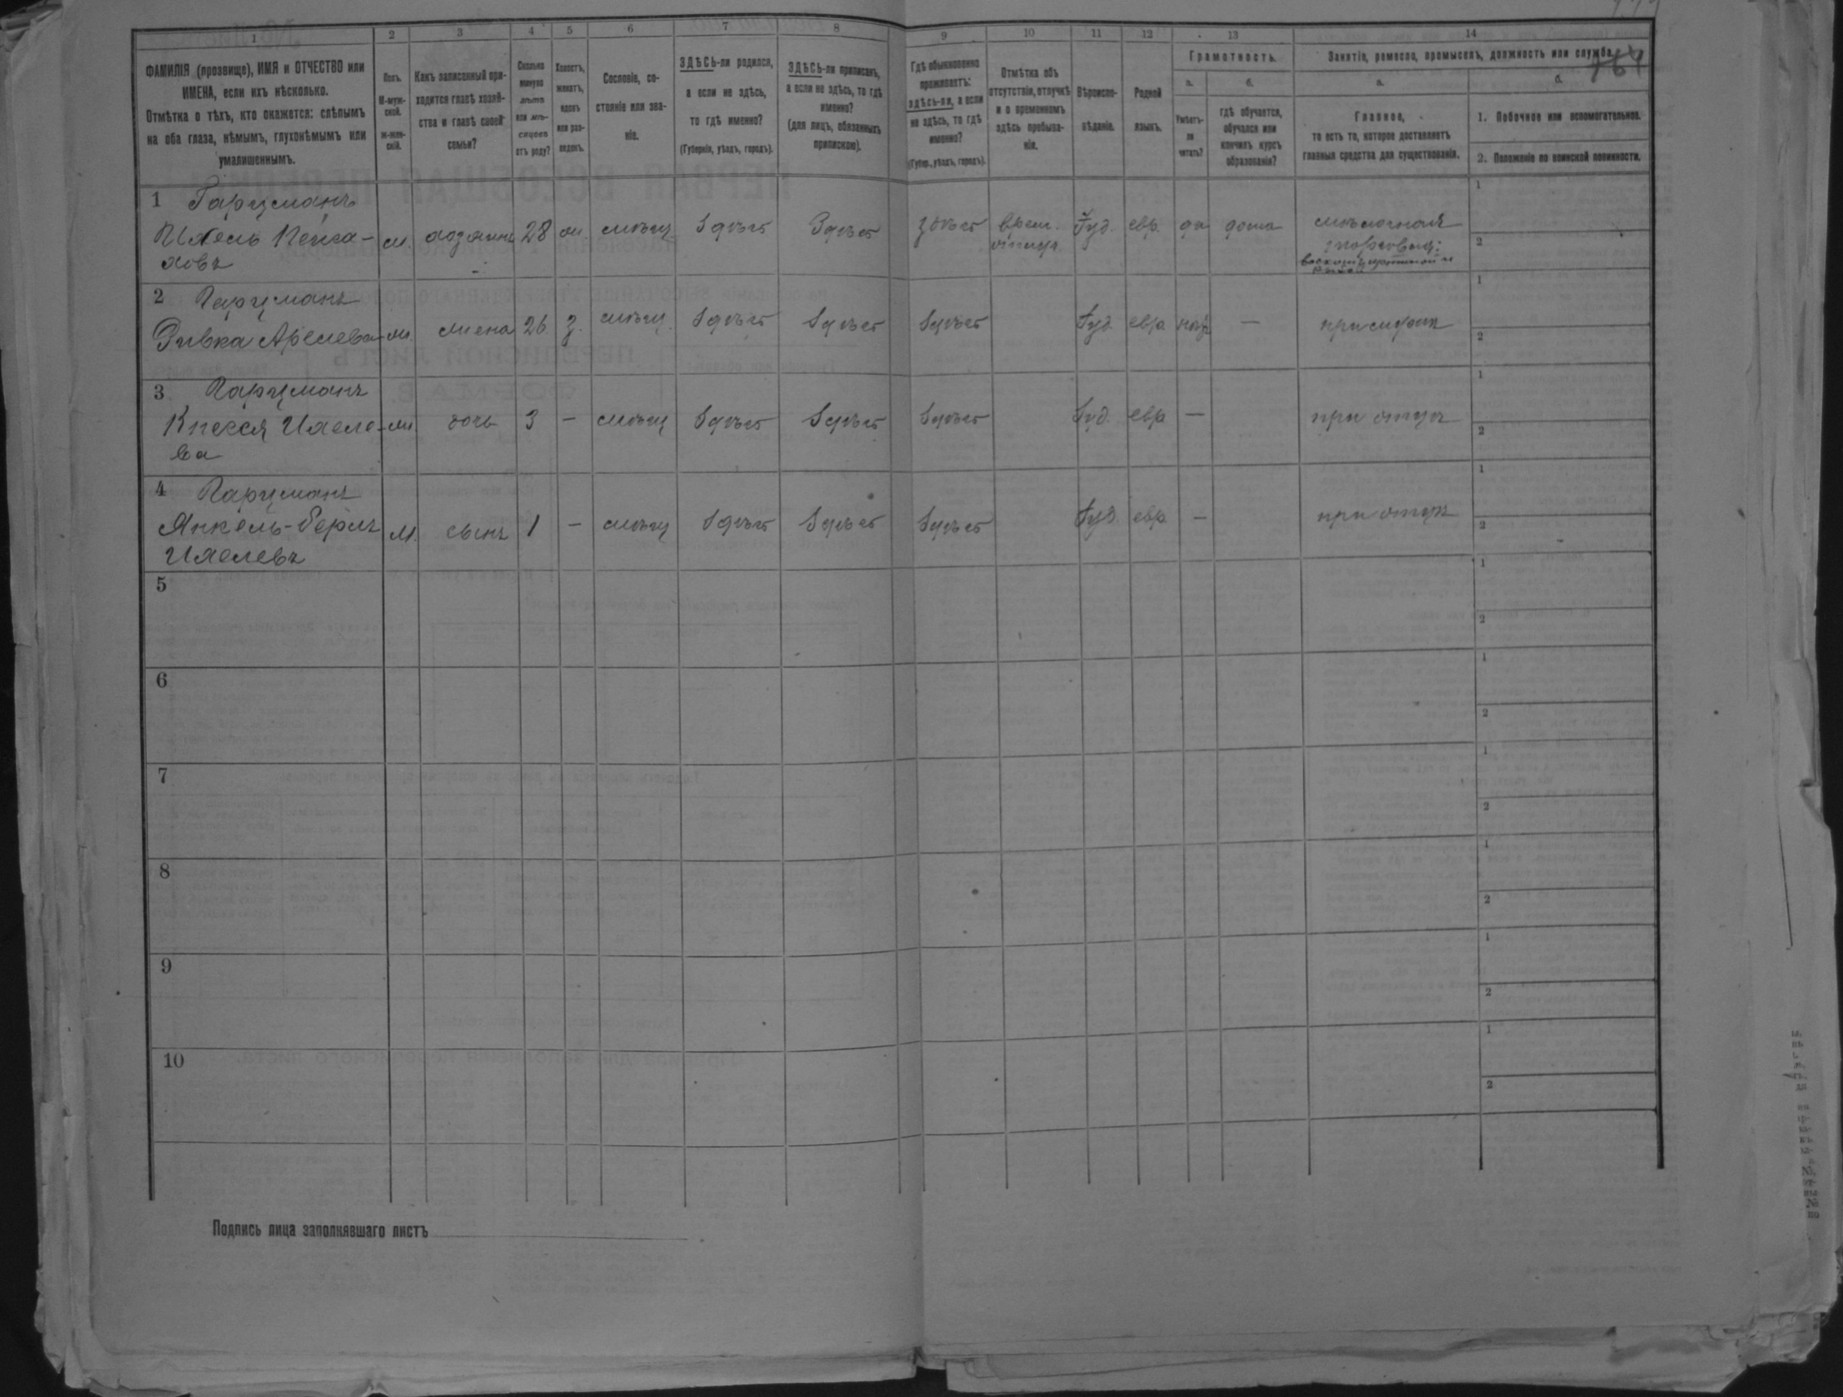 1 2 3 4 5 6 7 8 9 10 11 12 13 14
ФАМИЛІЯ (прозвище), ИМЯ и ОТЧЕСТВО или
ИМЕНА, если ихъ нѣсколько.
Отмѣтка о тѣхъ, кто окажется: слѣпымъ
на оба глаза, нѣмымъ, глухонѣмымъ или
умалишеннымъ.
Полъ.
М-муж-
ской.
ж-жен-
скій.
Какъ записанный при-
ходится главѣ хозяй-
ства и главѣ своей
семьи?
Сколько
минуло
лѣтъ
или мѣ-
сяцевъ
отъ роду?
Холостъ,
женатъ,
вдовъ
или раз-
веденъ.
Сословіе, со-
стояніе или зва-
ніе.
ЗДѢСЬ-ли родился,
а если не здѣсь,
то гдѣ именно?
(Губернія, уѣздъ, городъ).
ЗДѢСЬ-ли приписанъ,
а если не здѣсь, то гдѣ
именно?
(для лицъ, обязанныхъ
припискою).
Гдѣ обыкновенно
проживаетъ:
здѣсь-ли, а если
не здѣсь, то гдѣ
именно?
(Губер., уѣздъ, городъ).
Отмѣтка объ
отсутствіи, отлучкѣ
и о временномъ
здѣсь пребыва-
ніи.
Вѣроиспо-
вѣданіе.
Родной
языкъ.
Грамотность.
а.
Умѣетъ-
ли
читать?
б.
гдѣ обучается,
обучался или
кончилъ курсъ
образованія?
Занятіе, ремесло, промыселъ, должность или служба.
764
а.
Главное,
то есть то, которое доставляетъ
главныя средства для существованія.
б.
1. Побочное или вспомогательное.
2. Положеніе по воинской повинности.
1 Гарцманъ
м. хозяинъ 28 ж. мѣщ. здѣсь здѣсь здѣсь врем. отлуч. Іуд. евр. да дома
мѣлочная
торговля:
2 Гарцманъ
Ривка жена 26 з. мѣщ. здѣсь здѣсь здѣсь Іуд. евр —
при мужѣ
3 Гарцманъ
дочь 3 — мѣщ здѣсь здѣсь здѣсь Іуд. евр —
при отцѣ
4 Гарцманъ
Янкель-Берлъ м. сынъ 1 — мѣщ здѣсь здѣсь здѣсь Іуд. евр —
при отцѣ
5
6
7
8
9
10
Подпись лица заполнявшаго листъ